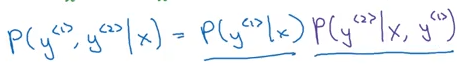 P(y^{<1>}, y^{<2>}|x) = P(y^{<1>}|x) P(y^{<2>}|x, y^{<1>})